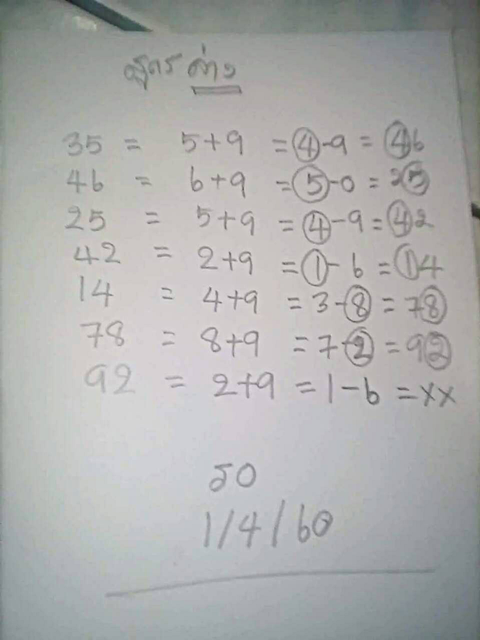 สูตร ล่าง
35 = 5+9 = 4-9 = 46
46 = 6+9 = 5-0 = 25
25 = 5+9 = 4-9 = 42
42 = 2+9 = 1-6 = 14
14 = 4+9 = 3-8 = 78
78 = 8+9 = 7-2 = 92
92 = 2+9 = 1-6 = xx
รอ
1/4/60